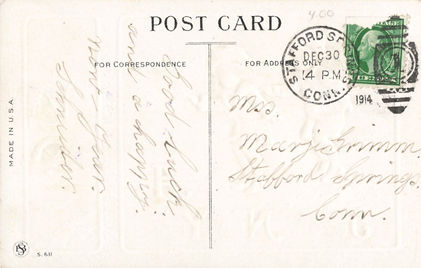 4.00
POST CARD
FOR CORRESPONDENCE
FOR ADDRESS ONLY
STAFFORD SP
DEC 30
4 PM
CONN.
1914
Good luck
and a happy
new Year.
Mrs.
Marji Grimm
Stafford Springs
Conn.
MADE IN U.S.A.
S. 611